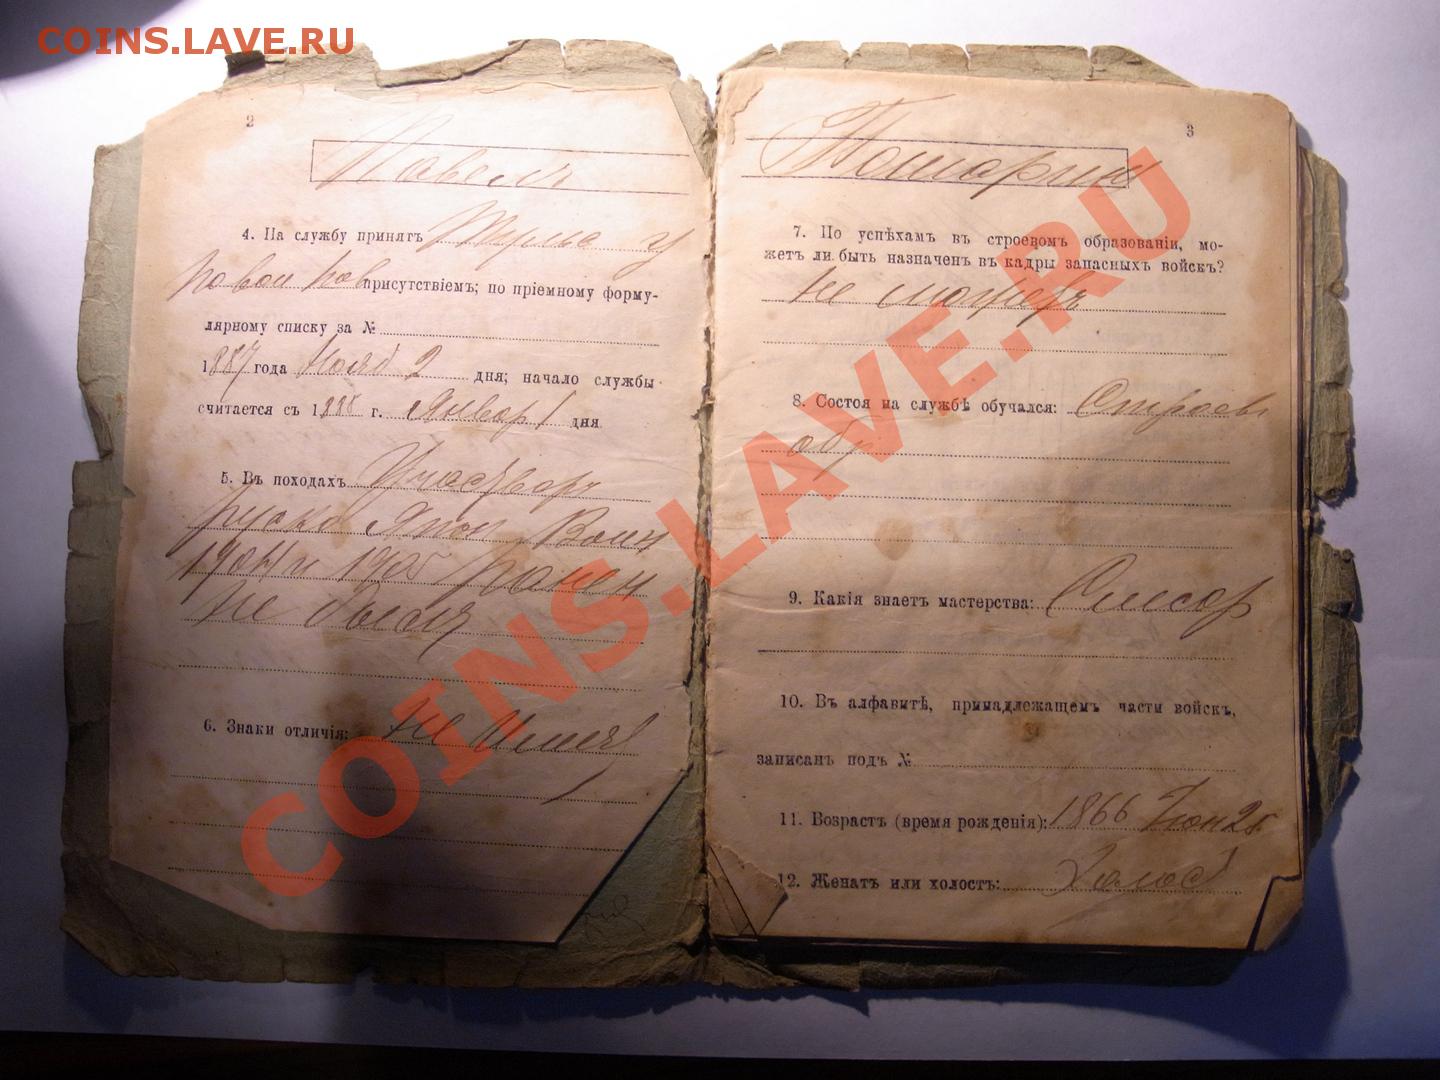 COINS.LAVE.RU
2
Павелъ
4. На службу принятъ
присутствіемъ; по пріемному форму-
лярному списку за №
1887 года Нояб 2 дня; начало службы
считается съ 1888 г. Январ 1 дня
5. Въ походахъ Участвовал
Русско Япон Воин
1904 и 1905 ранен
не былъ
6. Знаки отличія: не имеет
3
7. По успѣхамъ въ строевомъ образованіи, мо-
жетъ ли быть назначенъ въ кадры запасныхъ войскъ?
не можетъ
8. Состоя на службѣ обучался: Строев
обр
9. Какія знаетъ мастерства: Слесар
10. Въ алфавитѣ, принадлежащемъ части войскъ,
записанъ подъ №
11. Возрастъ (время рожденія): 1866 Іюн 25
12. Женатъ или холостъ: Холост
COINS.LAVE.RU